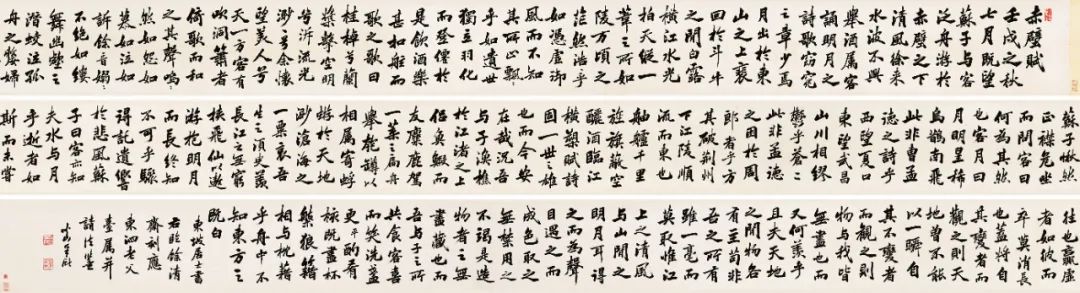 赤壁賦
壬戌之秋
七月既望
蘇子與客
泛舟游於
赤壁之下
清風徐來
水波不興
舉酒屬客
誦明月之
詩歌窈窕
之章少焉
月出於東
山之上裵
回於斗牛
之間白露
橫江水光
拍天縱一
葦之所如
陵萬頃之
茫然浩乎
如憑虛御
風而不知
其所止飄
乎如遺世
獨立羽化
而登僊於
是飲酒樂
甚扣舷而
歌之歌曰
桂棹兮蘭
槳擊空明
兮泝流光
渺〻兮余懷
望美人兮
天一方客有
吹洞簫者
倚歌而和
之其聲嗚〻
然如怨如
慕如泣如
訴餘音嫋〻
不絕如縷
舞幽壑之
潛蛟泣孤
舟之嫠婦
蘇子愀然
正襟危坐
而問客曰
何為其然
也客曰
月明星稀
烏鵲南飛
此非曹孟
德之詩乎
西望夏口
東望武昌
山川相繆
鬱乎蒼〻
此非孟德
之困於周
郎者乎方
其破荊州
下江陵順
流而東也
舳艫千里
旌旗蔽空
釃酒臨江
橫槊賦詩
固一世之雄
也而今安
在哉況吾
與子漁樵
於江渚之上
侶魚蝦而
友麋鹿駕
一葉之扁舟
舉匏罇以
相屬寄蜉
蝣於天地
渺滄海之
一粟哀吾
生之須臾羨
長江之無窮
挾飛仙以遨
游抱明月
而長終知
不可乎驟
得託遺響
於悲風蘇
子曰客亦知
夫水與月
乎逝者如
斯而未嘗
往也贏虛
者如彼而
卒莫消長
也蓋將自
其變者而
觀之則天
地曾不能
以一瞬自
其不變者
而觀之則
物與我皆
無盡也而
又何羨乎
且夫天地
之間物各
有主苟非
吾之所有
雖一毫而
莫取惟江
上之清風
與山間之
明月耳得
之而為聲
目遇之而
成色取之
無禁用之
不竭是造
物者之無
盡藏也而
吾與子之所
共食客喜
而笑洗盞
更酌肴
核既盡杯
盤狼籍
相與枕藉
乎舟中不
知東方之
既白
東坡居士書
右臨徐清
齋刻應
東泗老友
臺屬并
請法鑒